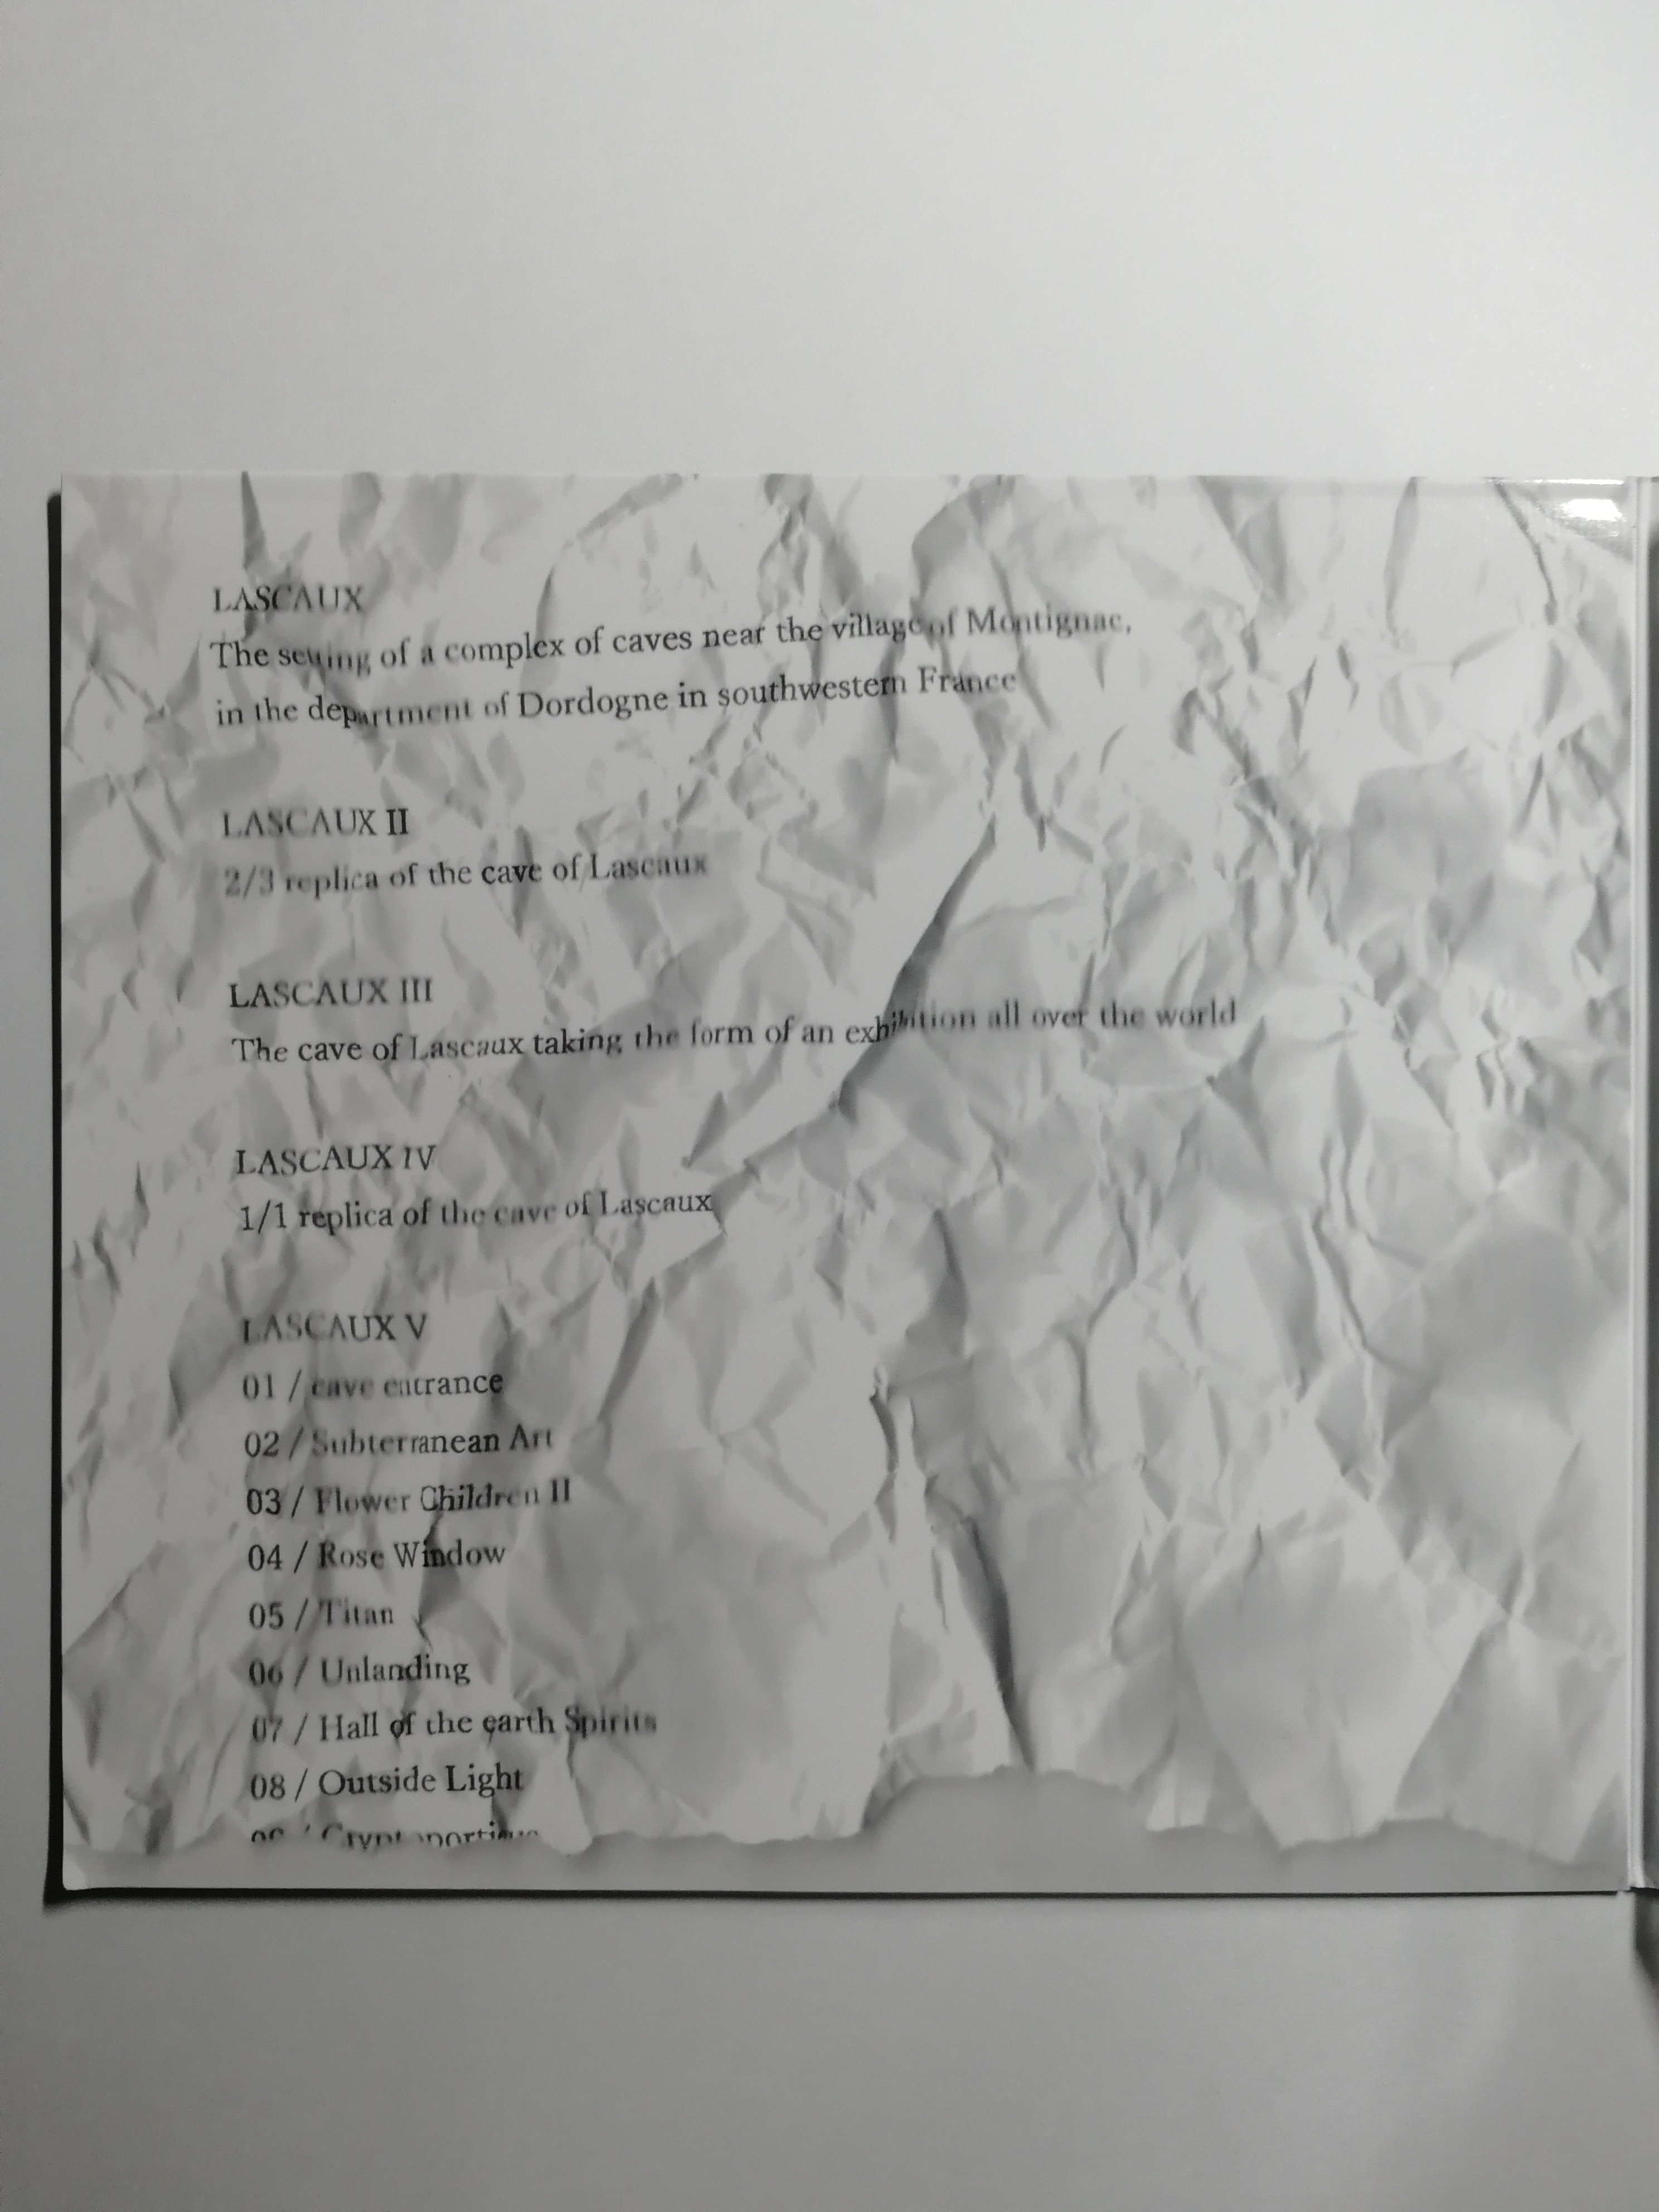 LASCAUX
The setting of a complex of caves near the village of Montignac,
in the department of Dordogne in southwestern France
LASCAUX II
2/3 replica of the cave of Lascaux
LASCAUX III
The cave of Lascaux taking the form of an exhibition all over the world
LASCAUX IV
1/1 replica of the cave of Lascaux
LASCAUX V
01 / cave entrance
02 / Subterranean Art
03 / Flower Children II
04 / Rose Window
05 / Titan
06 / Unlanding
07 / Hall of the earth Spirits
08 / Outside Light